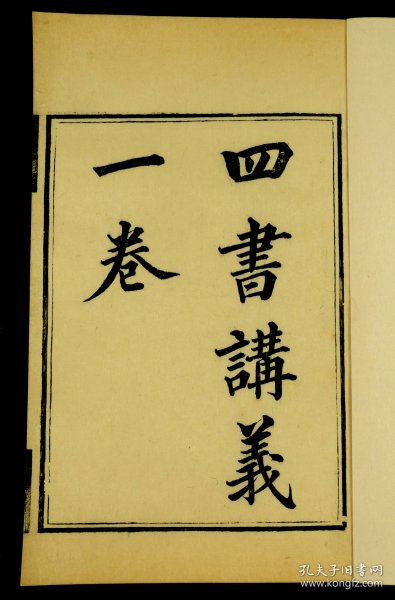 四書講義
一卷
孔夫子旧书网
www.kongfz.com